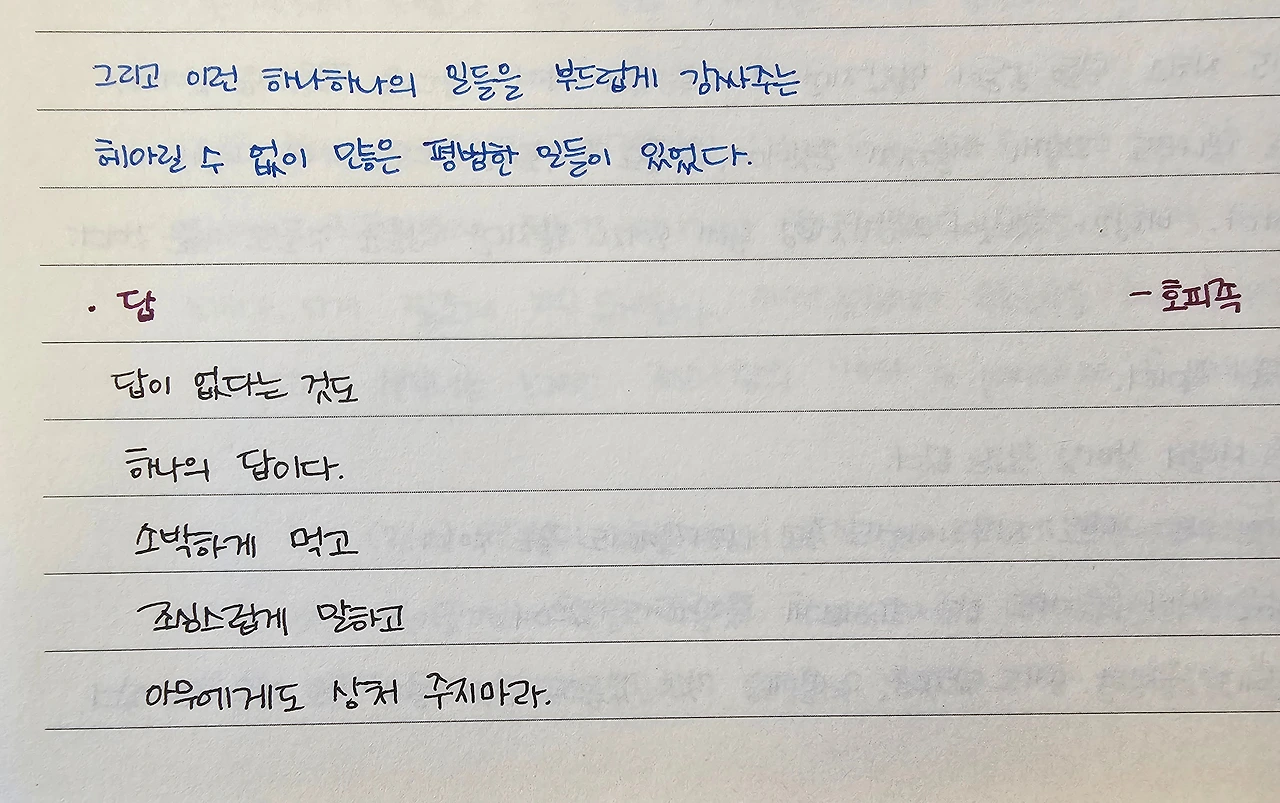 그리고 이런 하나하나의 일들을 부드럽게 감싸주는
헤아릴 수 없이 많은 평범한 일들이 있었다.
· 답 - 호피족
답이 없다는 것도
하나의 답이다.
소박하게 먹고
조심스럽게 말하고
아무에게도 상처 주지마라.